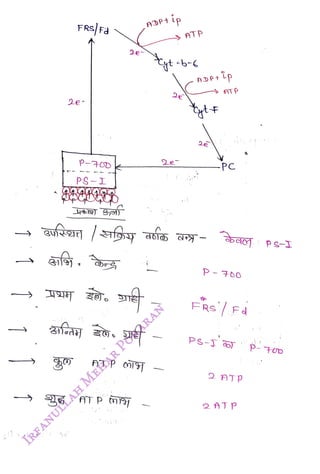 FRS/Fd
ADP+ip
ATP
2e-
Cyt-b-6
ADP+ip
ATP
2e-
2e-
Cyt-F
2e-
P-700
2e-
PC
PS-I
प्रकाश ऊर्जा
→ उपस्थित / सक्रिय वर्णक तन्त्र - केवल PS-I
→ अभि. केन्द्र - P-700
→ प्रथम इले. ग्राही - FRS/Fd
→ अन्तिम इले. ग्राही - PS-I का P-700
→ कुल ATP लाभ - 2 ATP
→ शुद्ध ATP लाभ - 2 ATP